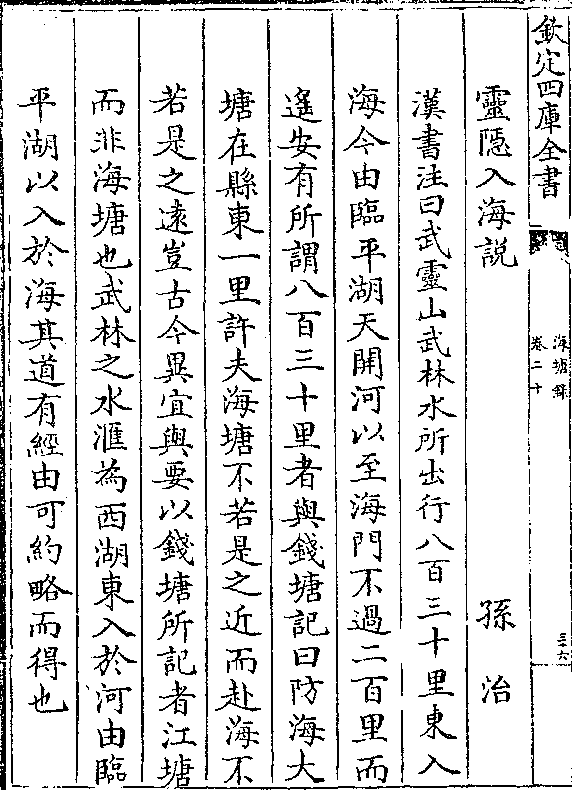 欽定四庫全書
海塘録
卷二十
三六
靈隱入海説
孫治
漢書注曰武靈山武林水所出行八百三十里東入
海今由臨平湖天開河以至海門不過二百里而
遙安有所謂八百三十里者與錢塘記曰防海大
塘在縣東一里許夫海塘不若是之近而赴海不
若是之遠豈古今異宜與要以錢塘所記者江塘
而非海塘也武林之水滙為西湖東入於河由臨
平湖以入於海其道有經由可約略而得也